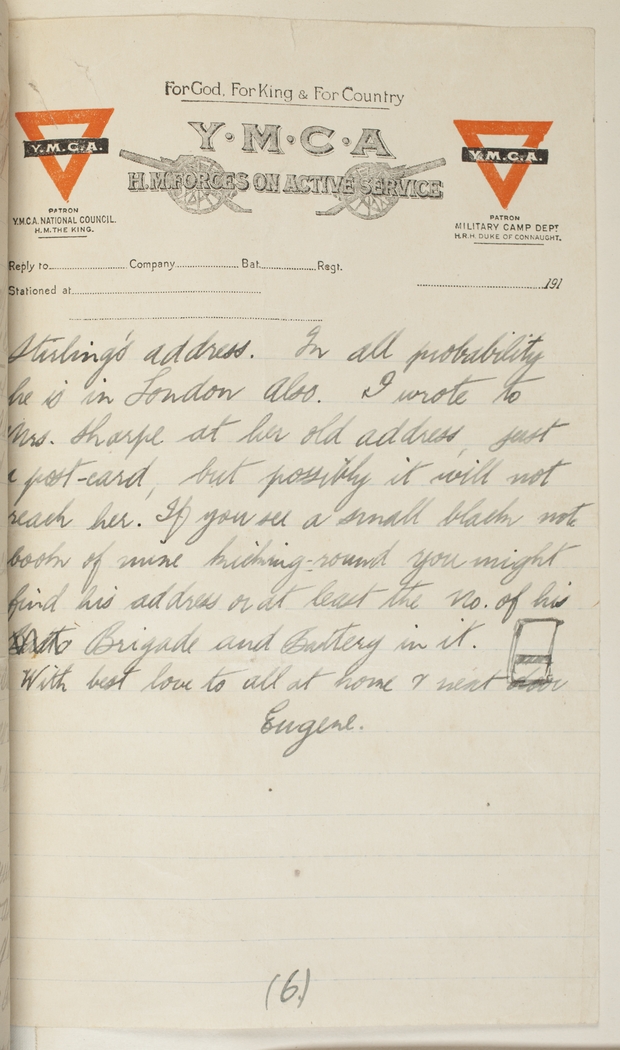 For God, For King & For Country
Y·M·C·A
H.M. FORCES ON ACTIVE SERVICE
Y.M.C.A.
PATRON
Y.M.C.A. NATIONAL COUNCIL.
H.M. THE KING.
Y.M.C.A.
PATRON
MILITARY CAMP DEPT
H.R.H. DUKE OF CONNAUGHT.
Reply to.................... Company................ Bat.............. Regt.
Stationed at....................................................
.................................191
Stirling's address. In all probability
he is in London also. I wrote to
Mrs. Sharpe at her old address, just
a post-card, but possibly it will not
reach her. If you see a small black note
book of mine kicking-round you might
find his address or at least the No. of his
Brigade and Battery in it.
With best love to all at home & next door
Eugene.
(6.)